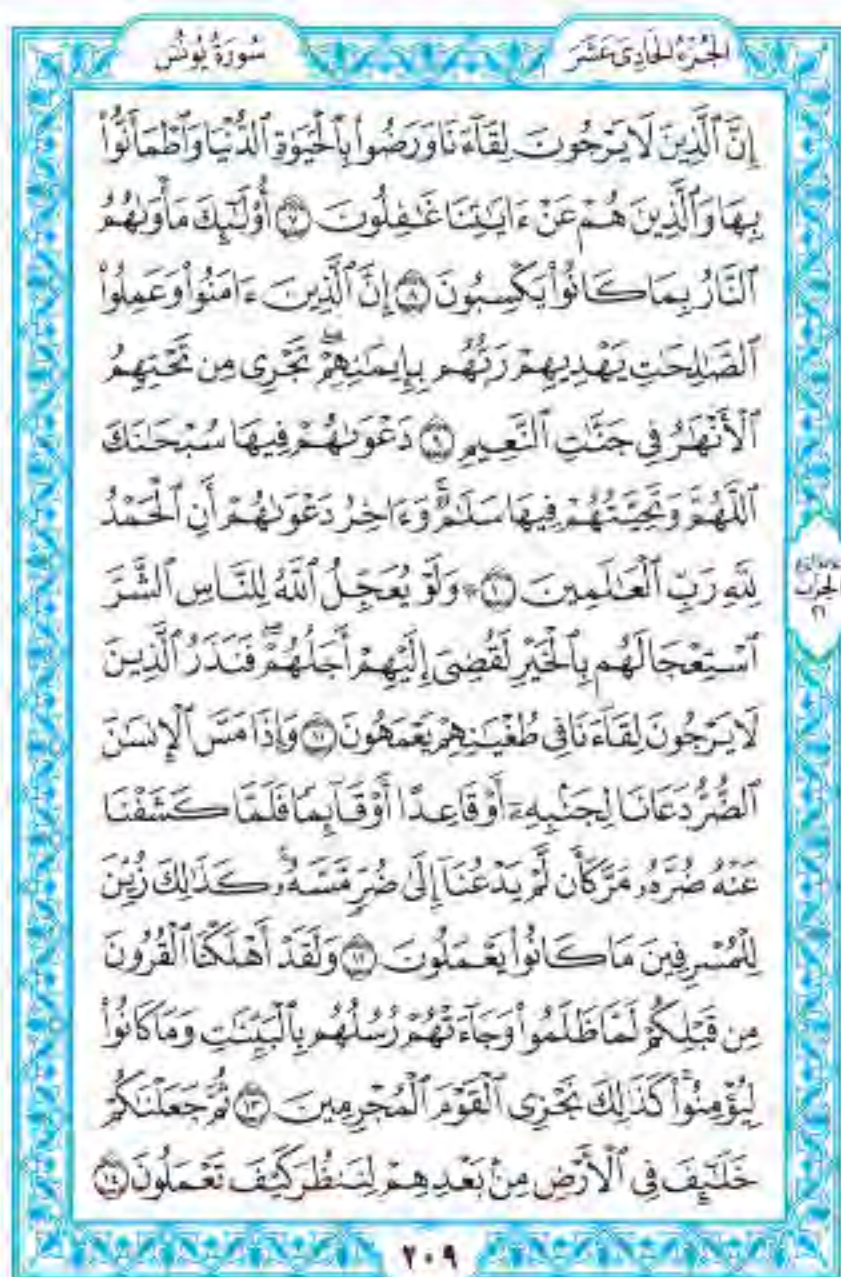 الجُزْءُ الحَادِى عَشَرَ
سُورَةُ يُونُسَ
إِنَّ ٱلَّذِينَ لَا يَرْجُونَ لِقَآءَنَا وَرَضُوا۟ بِٱلْحَيَوٰةِ ٱلدُّنْيَا وَٱطْمَأَنُّوا۟
بِهَا وَٱلَّذِينَ هُمْ عَنْ ءَايَٰتِنَا غَٰفِلُونَ ٧ أُو۟لَٰٓئِكَ مَأْوَىٰهُمُ
ٱلنَّارُ بِمَا كَانُوا۟ يَكْسِبُونَ ٨ إِنَّ ٱلَّذِينَ ءَامَنُوا۟ وَعَمِلُوا۟
ٱلصَّٰلِحَٰتِ يَهْدِيهِمْ رَبُّهُم بِإِيمَٰنِهِمْ ۖ تَجْرِى مِن تَحْتِهِمُ
ٱلْأَنْهَٰرُ فِى جَنَّٰتِ ٱلنَّعِيمِ ٩ دَعْوَىٰهُمْ فِيهَا سُبْحَٰنَكَ
ٱللَّهُمَّ وَتَحِيَّتُهُمْ فِيهَا سَلَٰمٌ ۚ وَءَاخِرُ دَعْوَىٰهُمْ أَنِ ٱلْحَمْدُ
لِلَّهِ رَبِّ ٱلْعَٰلَمِينَ ١٠ ۞ وَلَوْ يُعَجِّلُ ٱللَّهُ لِلنَّاسِ ٱلشَّرَّ
ٱسْتِعْجَالَهُم بِٱلْخَيْرِ لَقُضِىَ إِلَيْهِمْ أَجَلُهُمْ ۖ فَنَذَرُ ٱلَّذِينَ
لَا يَرْجُونَ لِقَآءَنَا فِى طُغْيَٰنِهِمْ يَعْمَهُونَ ١١ وَإِذَا مَسَّ ٱلْإِنسَٰنَ
ٱلضُّرُّ دَعَانَا لِجَنۢبِهِۦٓ أَوْ قَاعِدًا أَوْ قَآئِمًا فَلَمَّا كَشَفْنَا
عَنْهُ ضُرَّهُۥ مَرَّ كَأَن لَّمْ يَدْعُنَآ إِلَىٰ ضُرٍّ مَّسَّهُۥ ۚ كَذَٰلِكَ زُيِّنَ
لِلْمُسْرِفِينَ مَا كَانُوا۟ يَعْمَلُونَ ١٢ وَلَقَدْ أَهْلَكْنَا ٱلْقُرُونَ
مِن قَبْلِكُمْ لَمَّا ظَلَمُوا۟ وَجَآءَتْهُمْ رُسُلُهُم بِٱلْبَيِّنَٰتِ وَمَا كَانُوا۟
لِيُؤْمِنُوا۟ ۚ كَذَٰلِكَ نَجْزِى ٱلْقَوْمَ ٱلْمُجْرِمِينَ ١٣ ثُمَّ جَعَلْنَٰكُمْ
خَلَٰٓئِفَ فِى ٱلْأَرْضِ مِنۢ بَعْدِهِمْ لِنَنظُرَ كَيْفَ تَعْمَلُونَ ١٤
الحِزْب
٢١
٢٠٩